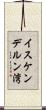 イスケン
デルン湾